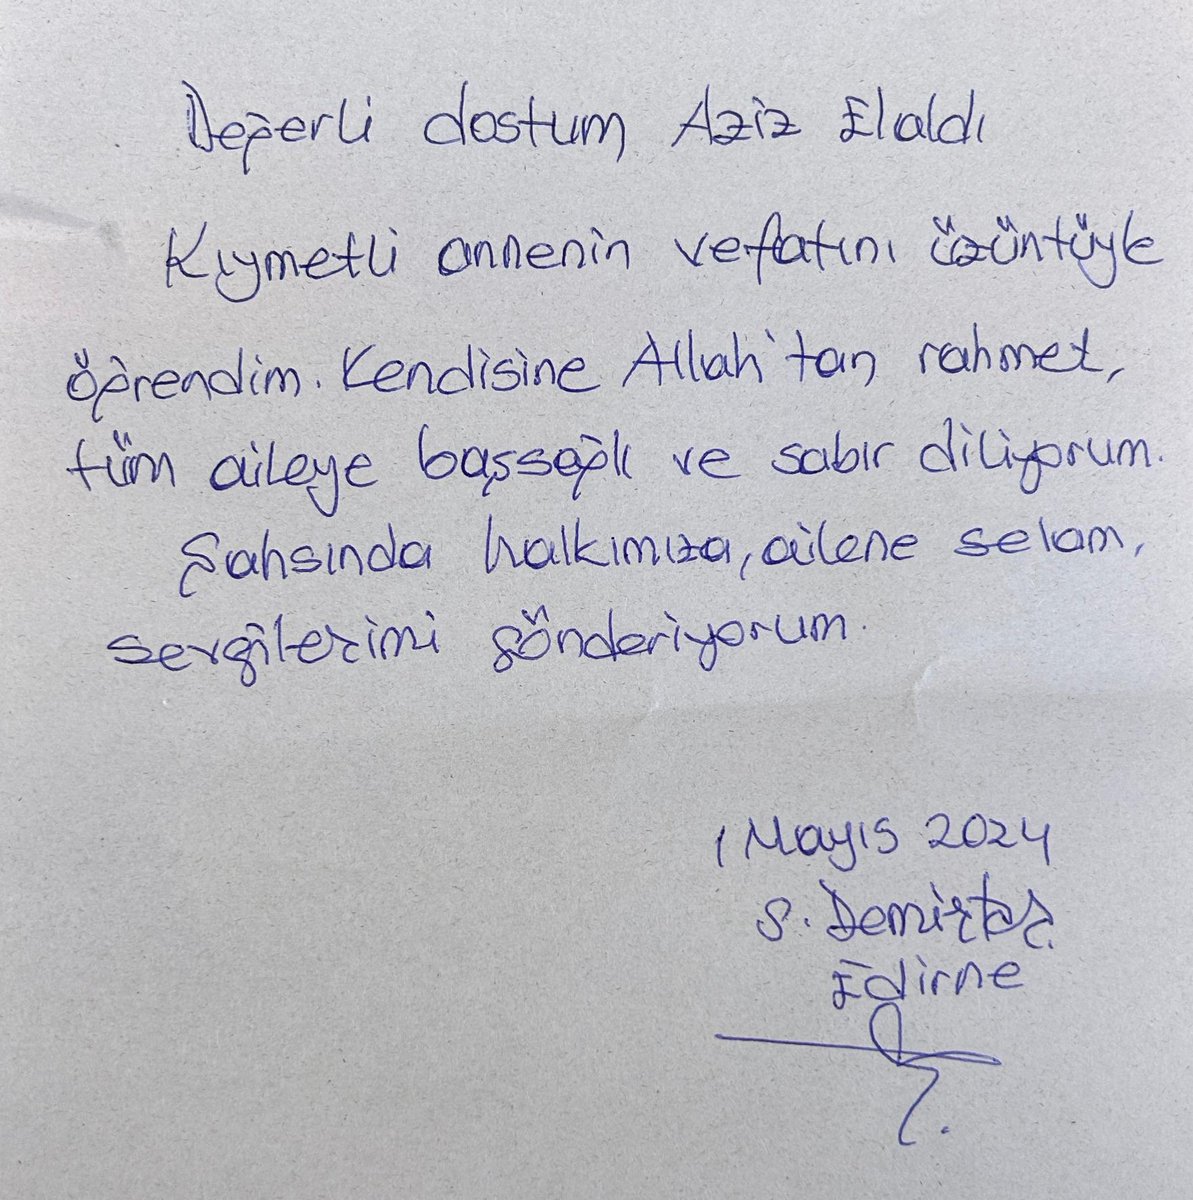 Değerli dostum Aziz Elaldı
Kıymetli annenin vefatını üzüntüyle
öğrendim. Kendisine Allah'tan rahmet,
tüm aileye başsağlı ve sabır diliyorum.
Şahsında halkımıza, ailene selam,
sevgilerimi gönderiyorum.
1 Mayıs 2024
S. Demirtaş
Edirne